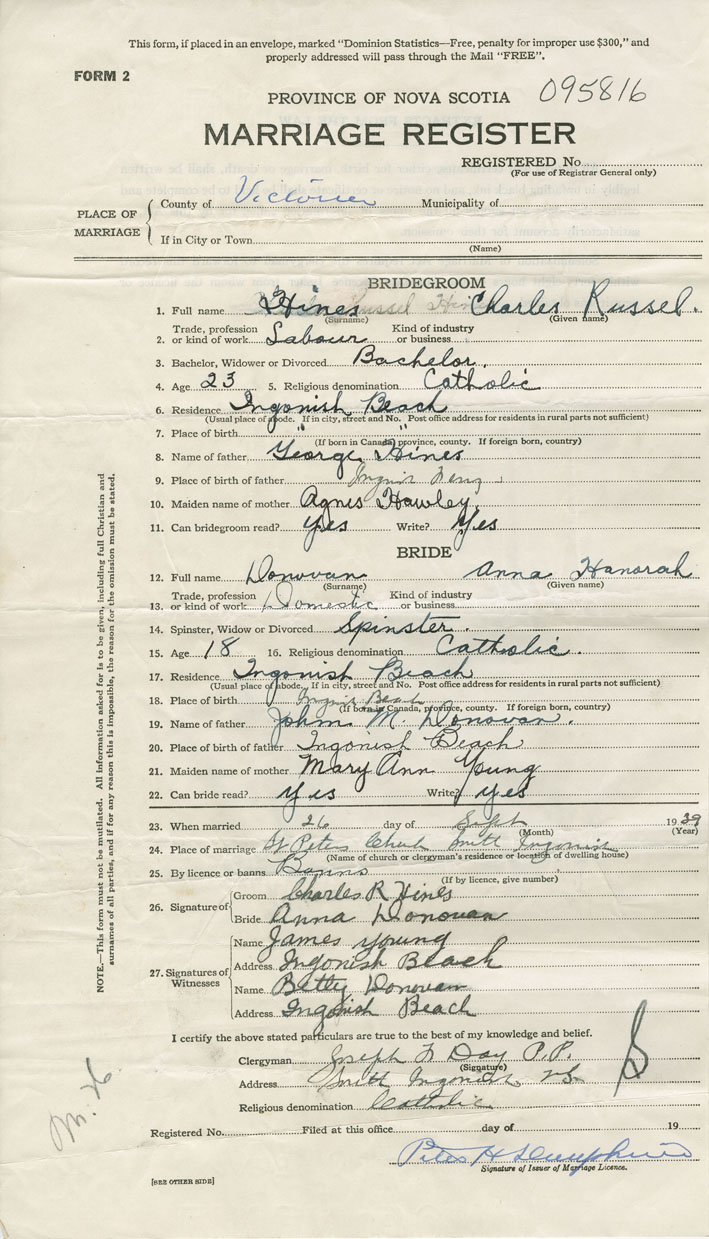 This form, if placed in an envelope, marked "Dominion Statistics—Free, penalty for improper use $300," and
properly addressed will pass through the Mail "FREE".
FORM 2
PROVINCE OF NOVA SCOTIA 095816
MARRIAGE REGISTER
REGISTERED No.
(For use of Registrar General only)
PLACE OF MARRIAGE
County of Victoria Municipality of
If in City or Town
(Name)
BRIDEGROOM
1. Full name Hines Charles Russel.
(Surname) (Given name)
2. Trade, profession or kind of work Labour Kind of industry or business
3. Bachelor, Widower or Divorced Bachelor.
4. Age 23 5. Religious denomination Catholic
6. Residence Ingonish Beach
(Usual place of abode. If in city, street and No. Post office address for residents in rural parts not sufficient)
7. Place of birth " "
(If born in Canada, province, county. If foreign born, country)
8. Name of father George Hines
9. Place of birth of father
10. Maiden name of mother Agnes Hawley
11. Can bridegroom read? Yes Write? Yes
BRIDE
12. Full name Donovan Anna Hanorah
(Surname) (Given name)
13. Trade, profession or kind of work Domestic Kind of industry or business
14. Spinster, Widow or Divorced Spinster.
15. Age 18 16. Religious denomination Catholic.
17. Residence Ingonish Beach
(Usual place of abode. If in city, street and No. Post office address for residents in rural parts not sufficient)
18. Place of birth Ingonish Beach
(If born in Canada, province, county. If foreign born, country)
19. Name of father John M. Donovan.
20. Place of birth of father Ingonish Beach
21. Maiden name of mother Mary Ann Young
22. Can bride read? yes Write? yes
23. When married 26 day of Sept 1939
(Month) (Year)
24. Place of marriage St Peters Church Ingonish
(Name of church or clergyman's residence or location of dwelling house)
25. By licence or banns Banns
(If by licence, give number)
26. Signature of
Groom Charles R Hines
Bride Anna Donovan
27. Signatures of Witnesses
Name James young
Address Ingonish Beach
Name Betty Donovan
Address Ingonish Beach
I certify the above stated particulars are true to the best of my knowledge and belief.
Clergyman Joseph F Day P.P.
(Signature)
Address Ingonish N.S.
Religious denomination Catholic
Registered No. Filed at this office day of 19
Signature of Issuer of Marriage Licence.
[SEE OTHER SIDE]
NOTE.—This form must not be mutilated. All information asked for is to be given, including full Christian and
surnames of all parties, and if for any reason this is impossible, the reason for the omission must be stated.